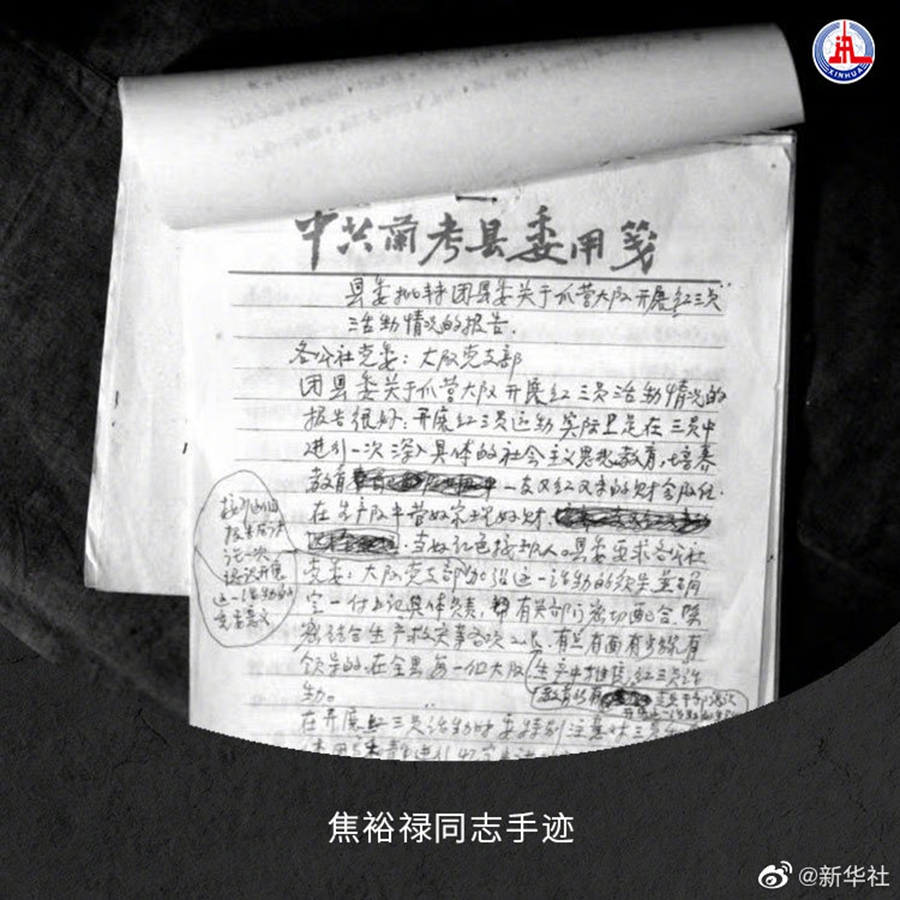 XINHUA
中共蘭考县委用笺
县委批转团县委关于爪营大队开展红三员
活动情况的报告.
各公社党委：大队党支部
团县委关于爪营大队开展红三员活动情况的
报告很好：开展红三员运动实际上是在三员中
进行一次深入具体的社会主义思想教育，培养
教育一支又红又专的财会队伍.
在生产队中营好家理好财.
当好红色接班人。县委要求各公社
党委：大队党支部加强这一活动的领导并确
定一付书记具体负责，有关部门密切配合，紧
密结合生产救灾等各项工作，有点有面有步骤有
领导的，在全县每一个大队生产中推广红三员活
动。
教育所有党员干部认识
讨论一次
认识开展
这一活动的
重要意义
在开展红三员活动时要特别注意对三员
焦裕禄同志手迹
@新华社